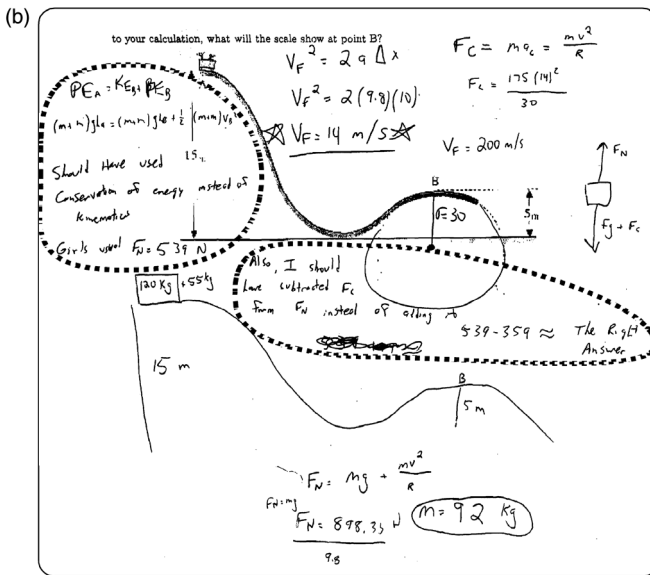 (b)
to your calculation, what will the scale show at point B?
V_F² = 2a Δx
V_F² = 2(9.8)(10)
☆ V_F = 14 m/s ☆
F_C = ma_c = mv²/R
F_c = 175(14)²/30
V_F = 200 m/s
PE_A = KE_B + PE_B
Should Have used
Conservation of energy instead of
kinematics
Girls usual F_N = 539 N
15
B
r=30
5m
F_N
Fg + F_c
Also, I should
have subtracted F_c
from F_N instead of adding it
539-359 ≈ The Right
Answer
120 kg +55kg
15 m
B
5 m
F_N = mg + mv²/R
F_N=mg
F_N = 898.33 N
9.8
m = 92 kg